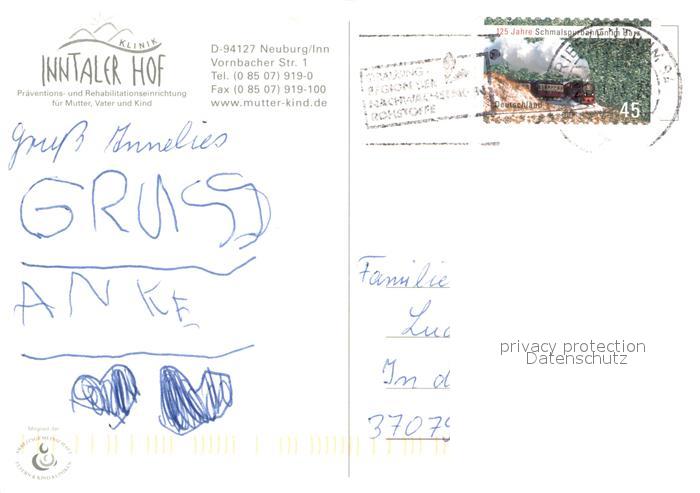 KLINIK
INNTALER HOF
Präventions- und Rehabilitationseinrichtung
für Mutter, Vater und Kind
D-94127 Neuburg/Inn
Vornbacher Str. 1
Tel. (0 85 07) 919-0
Fax (0 85 07) 919-100
www.mutter-kind.de
125 Jahre Schmalspurbahnen im Harz
Deutschland
45
STRAUBING
REGION DER
NACHWACHSENDEN
ROHSTOFFE
Gruß Annelies
GRUSS
ANKE
Familie
Luc
In d
37079
privacy protection
Datenschutz
Mitglied der